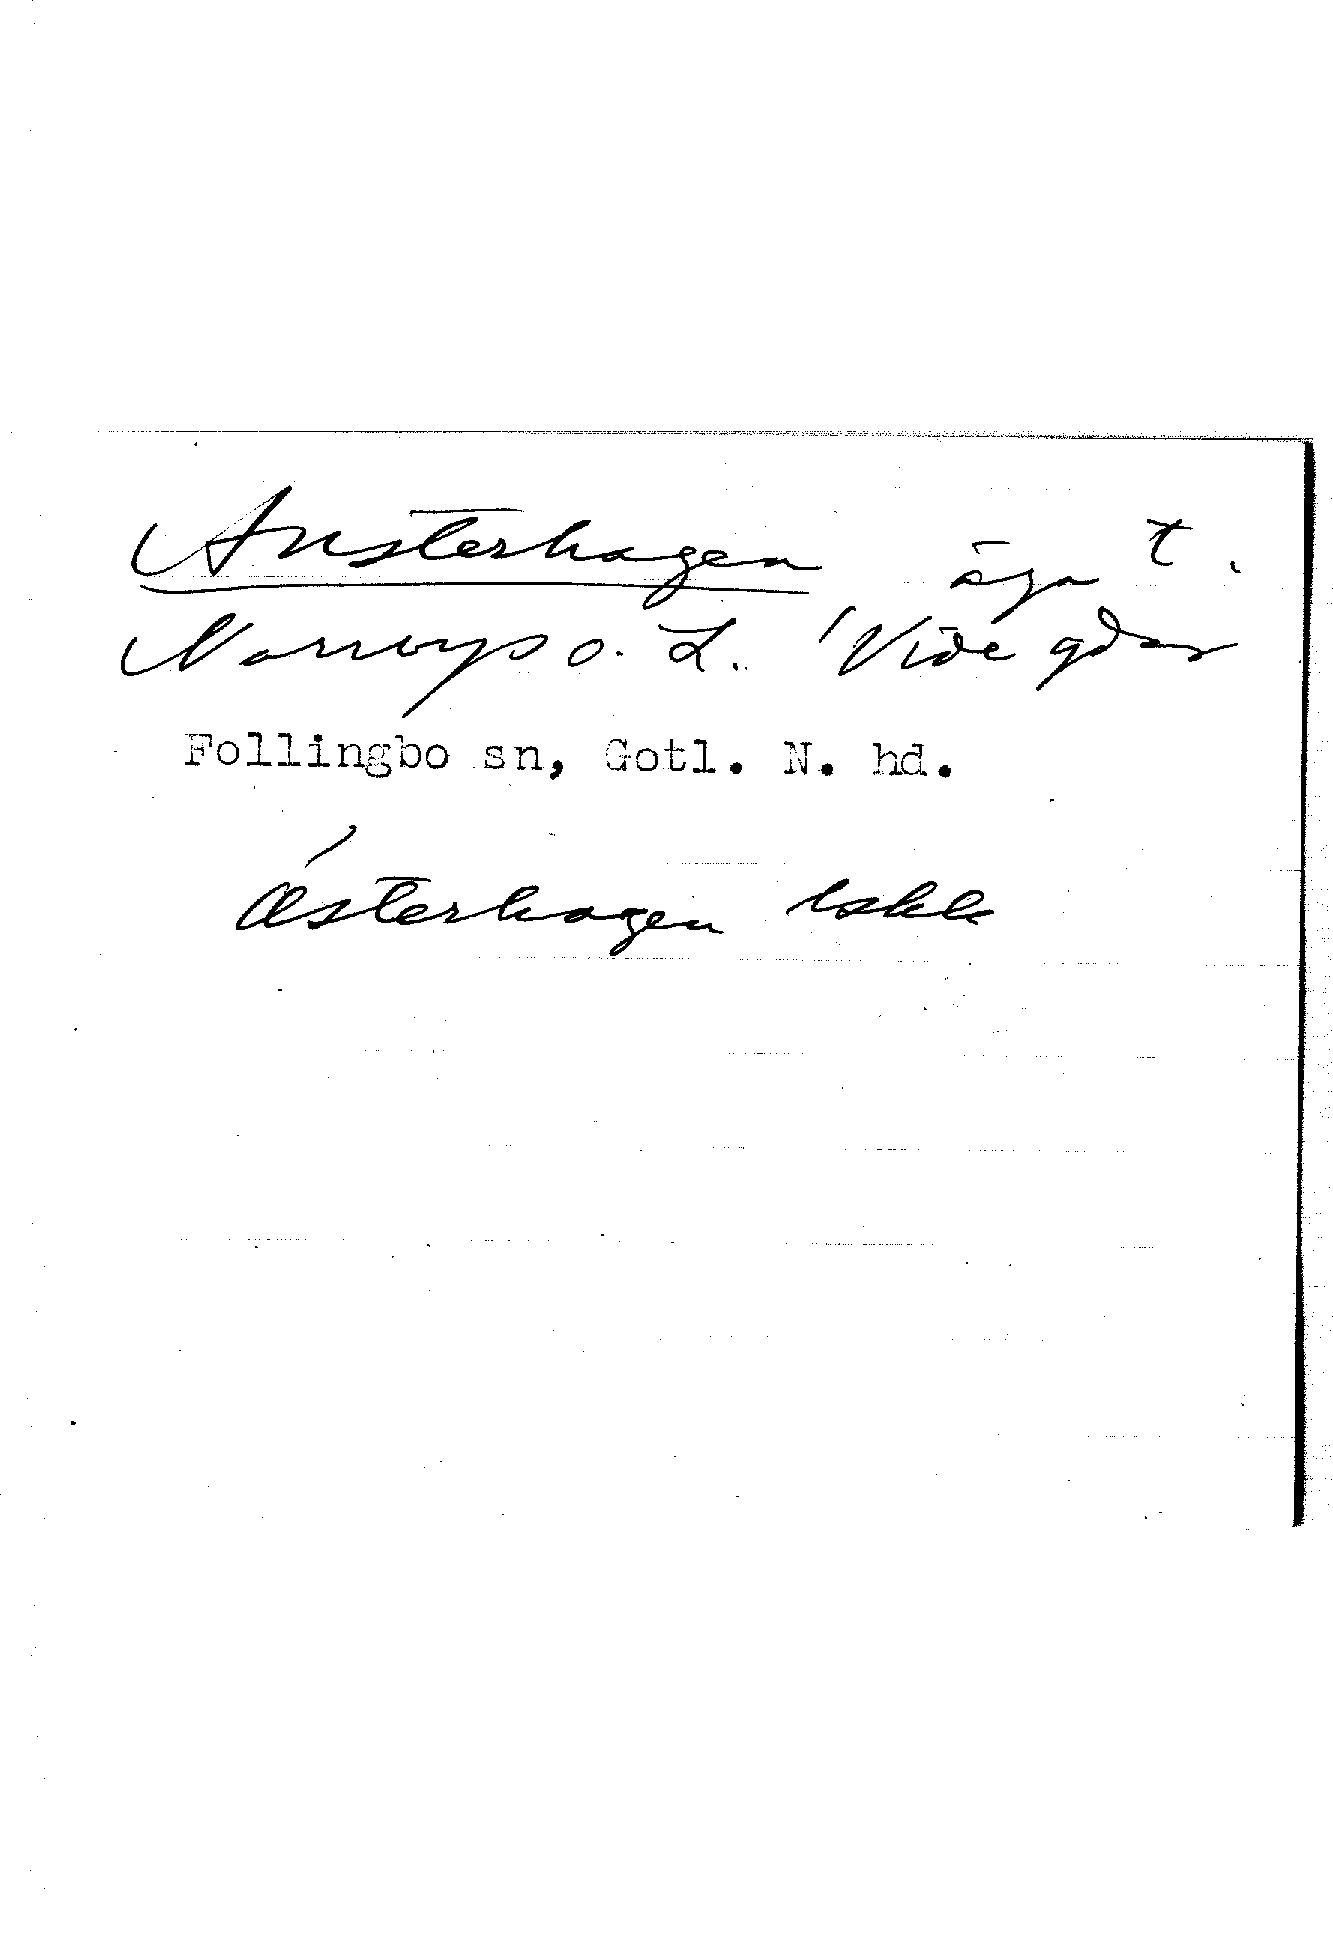 Austerhagen äga t.
Norrbys o. L. Vide gdar
Follingbo sn, Gotl. N. hd.
Österhagen